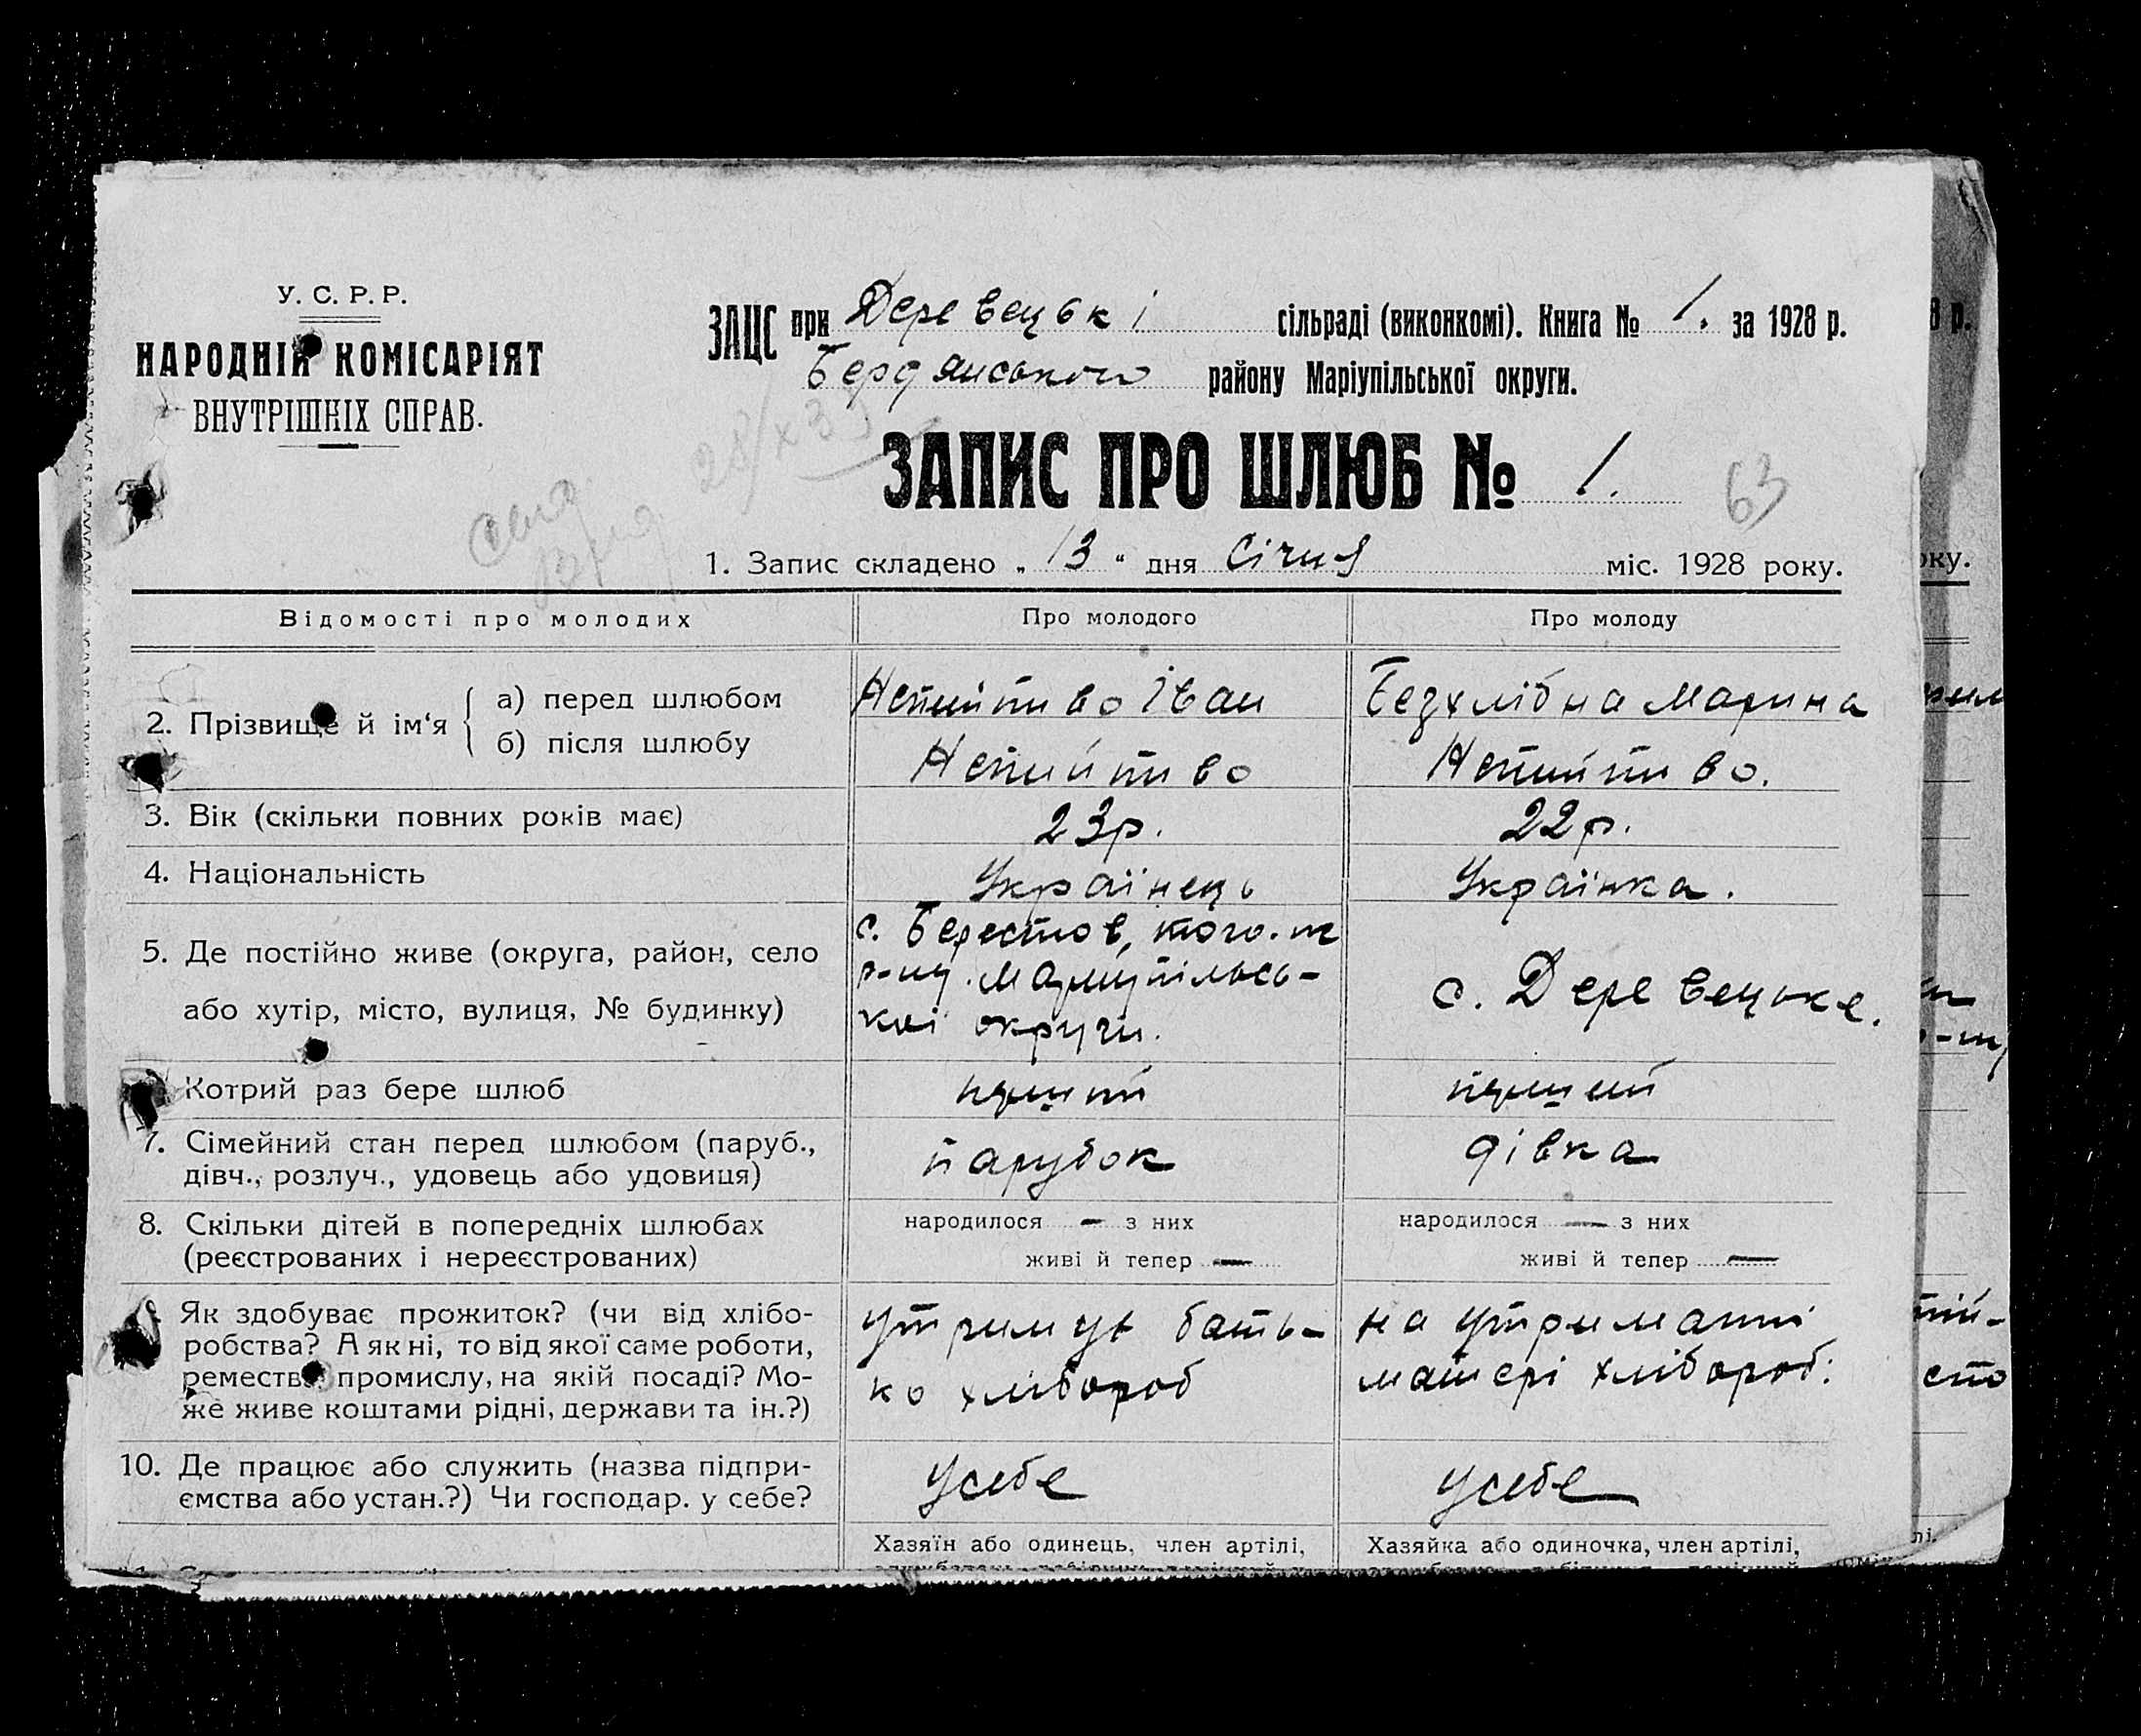 У. С. Р. Р.
НАРОДНІЙ КОМІСАРІЯТ
ВНУТРІШНІХ СПРАВ.
ЗАЦС при Деревецькі сільраді (виконкомі). Книга № 1. за 1928 р.
Бердянського району Маріупільської округи.
28/х 33
ЗАПИС ПРО ШЛЮБ № 1.
63
1. Запис складено „ 13 “ дня Січня міс. 1928 року.
Відомості про молодих Про молодого Про молоду
2. Прізвище й ім‘я
а) перед шлюбом Непийпиво Іван Безхлібна Марина
б) після шлюбу Непийпиво Непийпиво.
3. Вік (скільки повних років має) 23р. 22р.
4. Національність Українець Українка.
5. Де постійно живе (округа, район, село
або хутір, місто, вулиця, № будинку)
с. Берестов, того-ж
р-ну. Маріупільсь-
кої округи.
с. Деревецьке.
Котрий раз бере шлюб перший перший
7. Сімейний стан перед шлюбом (паруб.,
дівч., розлуч., удовець або удовиця)
парубок дівка
8. Скільки дітей в попередніх шлюбах
(реєстрованих і нереєстрованих)
народилося — з них
живі й тепер —
народилося — з них
живі й тепер —
Як здобуває прожиток? (чи від хлібо-
робства? А як ні, то від якої саме роботи,
ремества, промислу, на якій посаді? Мо-
же живе коштами рідні, держави та ін.?)
утримує бать-
ко хлібороб
на утриманні
матері хлібороб.
10. Де працює або служить (назва підпри-
ємства або устан.?) Чи господар. у себе?
У себе У себе
Хазяїн або одинець, член артілі,
Хазяйка або одиночка, член артілі,